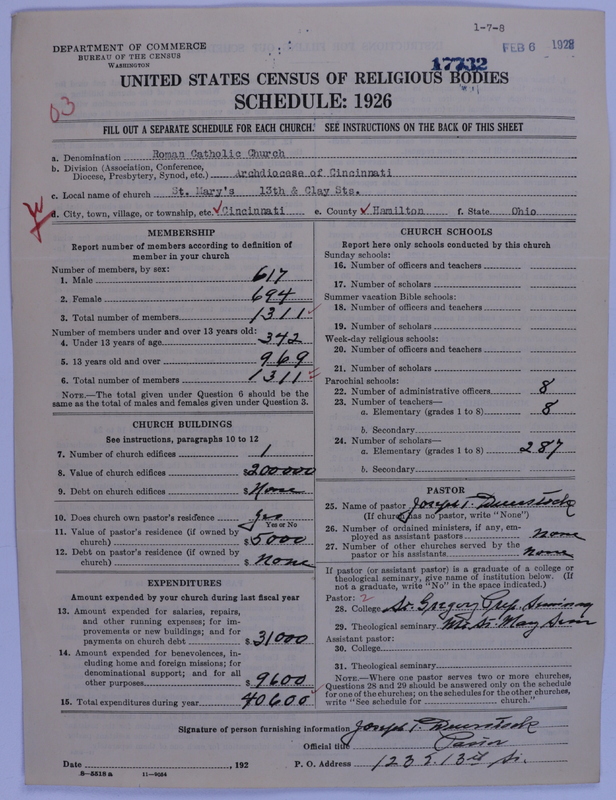 1-7-8
DEPARTMENT OF COMMERCE
BUREAU OF THE CENSUS
WASHINGTON
FEB 6 1928
17732
UNITED STATES CENSUS OF RELIGIOUS BODIES
SCHEDULE: 1926
03
FILL OUT A SEPARATE SCHEDULE FOR EACH CHURCH. SEE INSTRUCTIONS ON THE BACK OF THIS SHEET
a. Denomination Roman Catholic Church
b. Division (Association, Conference,
Diocese, Presbytery, Synod, etc.) Archdiocese of Cincinnati
c. Local name of church St. Mary's 13th & Clay Sts.
d. City, town, village, or township, etc. Cincinnati e. County Hamilton f. State Ohio
MEMBERSHIP
Report number of members according to definition of
member in your church
Number of members, by sex:
1. Male 617
2. Female 694
3. Total number of members 1311
Number of members under and over 13 years old:
4. Under 13 years of age 342
5. 13 years old and over 969
6. Total number of members 1311
NOTE.—The total given under Question 6 should be the
same as the total of males and females given under Question 3.
CHURCH BUILDINGS
See instructions, paragraphs 10 to 12
7. Number of church edifices 1
8. Value of church edifices $200000
9. Debt on church edifices $None
10. Does church own pastor's residence Yes
Yes or No
11. Value of pastor's residence (if owned by
church) $5000
12. Debt on pastor's residence (if owned by
church) $None
EXPENDITURES
Amount expended by your church during last fiscal year
13. Amount expended for salaries, repairs,
and other running expenses; for im-
provements or new buildings; and for
payments on church debt $31000
14. Amount expended for benevolences, in-
cluding home and foreign missions; for
denominational support; and for all
other purposes $9600
15. Total expenditures during year 40600
CHURCH SCHOOLS
Report here only schools conducted by this church
Sunday schools:
16. Number of officers and teachers
17. Number of scholars
Summer vacation Bible schools:
18. Number of officers and teachers
19. Number of scholars
Week-day religious schools:
20. Number of officers and teachers
21. Number of scholars
Parochial schools:
22. Number of administrative officers 8
23. Number of teachers—
a. Elementary (grades 1 to 8) 8
b. Secondary
24. Number of scholars—
a. Elementary (grades 1 to 8) 287
b. Secondary
PASTOR
25. Name of pastor Joseph T.
(If church has no pastor, write "None")
26. Number of ordained ministers, if any, em-
ployed as assistant pastors none
27. Number of other churches served by the
pastor or his assistants none
If pastor (or assistant pastor) is a graduate of a college or
theological seminary, give name of institution below. (If
not a graduate, write "No" in the space indicated.)
Pastor: 2
28. College St. Gregory Prep. Seminary
29. Theological seminary Mt. St. Mary Sem
Assistant pastor:
30. College
31. Theological seminary
NOTE.—Where one pastor serves two or more churches,
Questions 28 and 29 should be answered only on the schedule
for one of the churches; on the schedules for the other churches,
write "See schedule for church."
Signature of person furnishing information Joseph T.
Official title Pastor
Date , 192 P. O. Address 123 E. 13th St.
8-5518a 11-9054